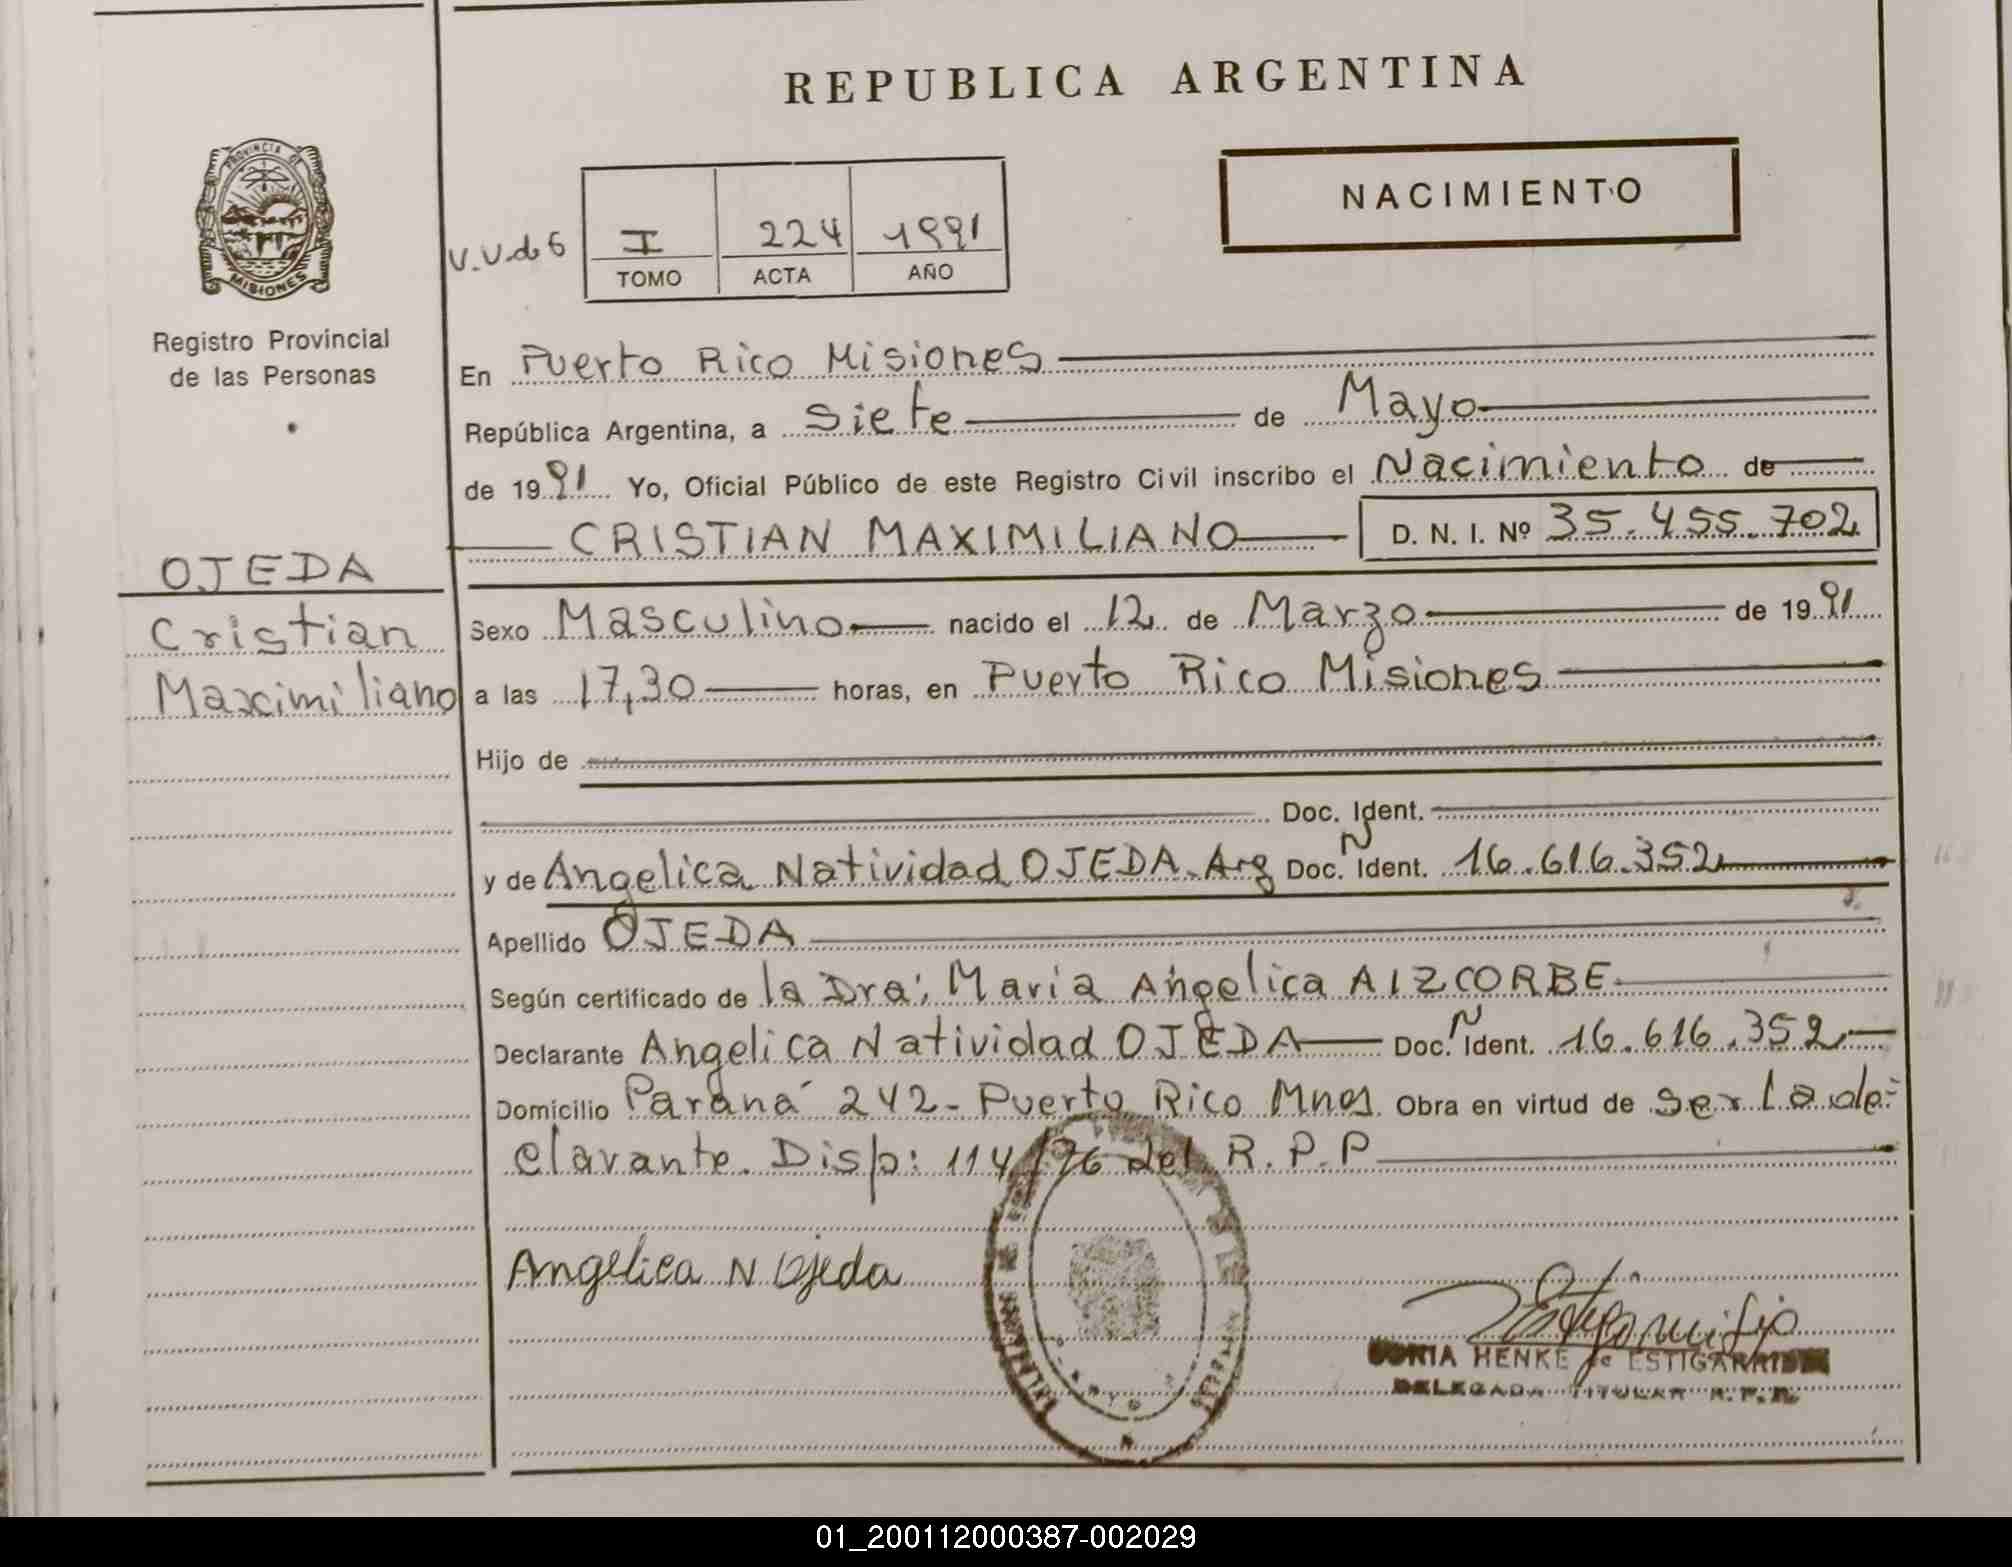 REPUBLICA ARGENTINA
PROVINCIA DE
MISIONES
Registro Provincial
de las Personas
NACIMIENTO
I 224 1991
TOMO ACTA AÑO
En Puerto Rico Misiones
República Argentina, a Siete de Mayo
de 1991 Yo, Oficial Público de este Registro Civil inscribo el Nacimiento de
CRISTIAN MAXIMILIANO D. N. I. Nº 35.455.702
OJEDA
Cristian
Maximiliano
Sexo Masculino nacido el 12 de Marzo de 1991
a las 17,30 horas, en Puerto Rico Misiones
Hijo de
Doc. Ident.
y de Angelica Natividad OJEDA. Arg Doc. N Ident. 16.616.352
Apellido OJEDA
Según certificado de la Dra: Maria Angelica AIZCORBE
Declarante Angelica Natividad OJEDA Doc. N Ident. 16.616.352
Domicilio Paraná 242- Puerto Rico Mnes Obra en virtud de ser la de-
clarante. Disp: 114/76 del R.P.P
Angelica N Ojeda
SONIA HENKE de ESTIGARRIBIA
DELEGADA TITULAR R.P.P.
01_200112000387-002029